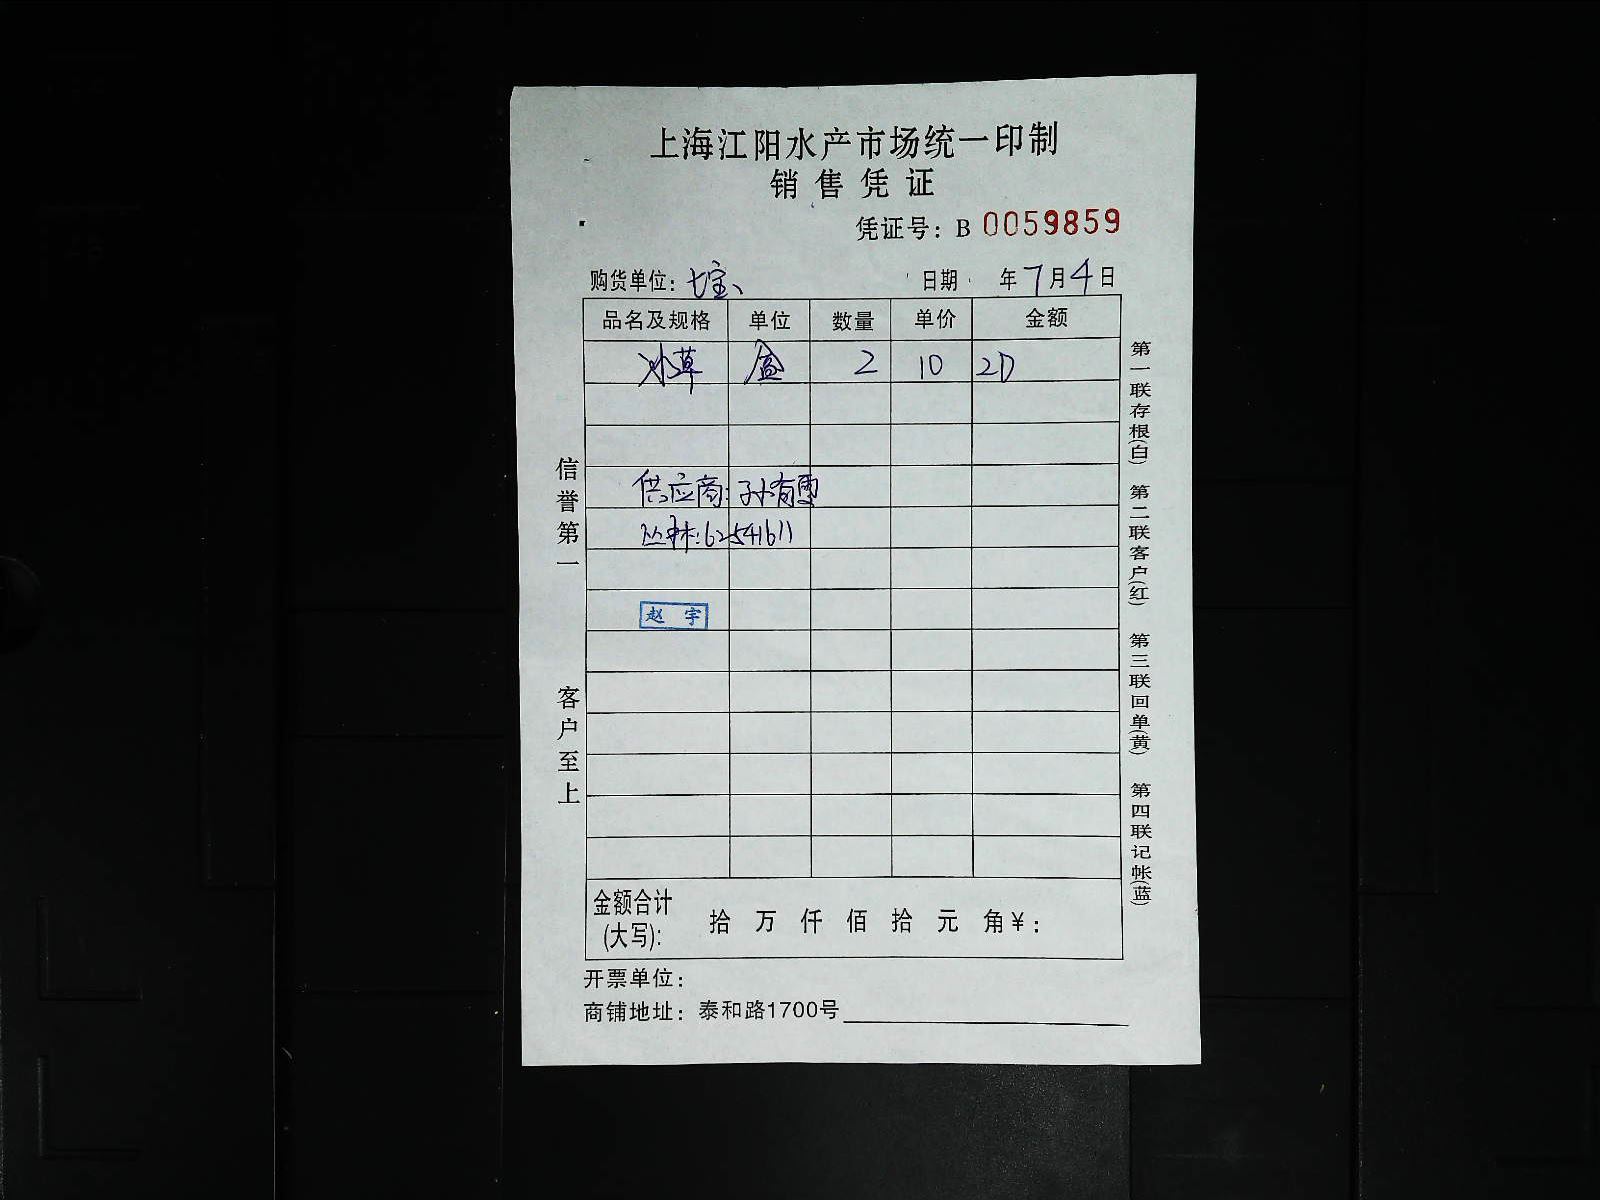 上海江阳水产市场统一印制
销售凭证
凭证号：B 0059859
购货单位：七宝 日期 年7月4日
品名及规格 单位 数量 单价 金额
冰草 盒 2 10 20
供应商：孙有雪
丛林：62541611
赵宇
金额合计(大写)： 拾 万 仟 佰 拾 元 角￥：
开票单位：
商铺地址：泰和路1700号
信誉第一
客户至上
第一联存根(白)
第二联客户(红)
第三联回单(黄)
第四联记帐(蓝)